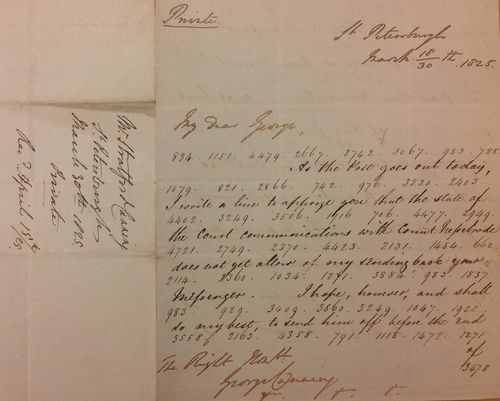 Private
St. Petersburgh
March 18/30 th. 1825.
My dear George,
834. 1151. 4479. 2667. 2742. 3067. 983. 788
As the Post goes out today,
1079. 821. 2866. 742. 976. 3220. 2403
I write a line to apprize you that the state of
4402. 3249. 3506. 1916. 706. 4477. 2949.
the Court communications with Count Nesselrode
4721. 2749. 2370. 4423. 2131. 1484. 662
does not yet allow of my sending back your
2114. 2360. 1034. 1291. 3884. 983. 1837
Messenger. I hope, however, and shall
983. 929. 3409. 3860. 3249. 1047. 1922
do my best, to send him off before the end
3550. 2163. 4358. 791. 1118. 1472. 1271
of
3478
The Right Honble.
George Canning
&. &. &.
Mr. Stratford Canning
St. Petersburgh
March 30th 1825.
Private
Recd. April 15th